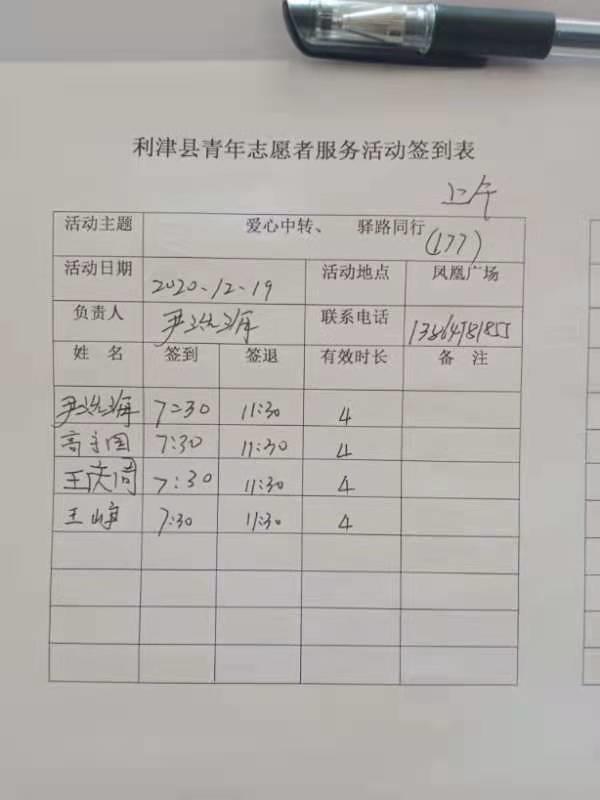 利津县青年志愿者服务活动签到表
上午
活动主题 爱心中转、 驿路同行 (177)
活动日期 2020.12.19 活动地点 凤凰广场
负责人 尹洪海 联系电话
姓名 签到 签退 有效时长 备注
尹洪海 7:30 11:30 4
高守国 7:30 11:30 4
王庆周 7:30 11:30 4
王 7:30 11:30 4